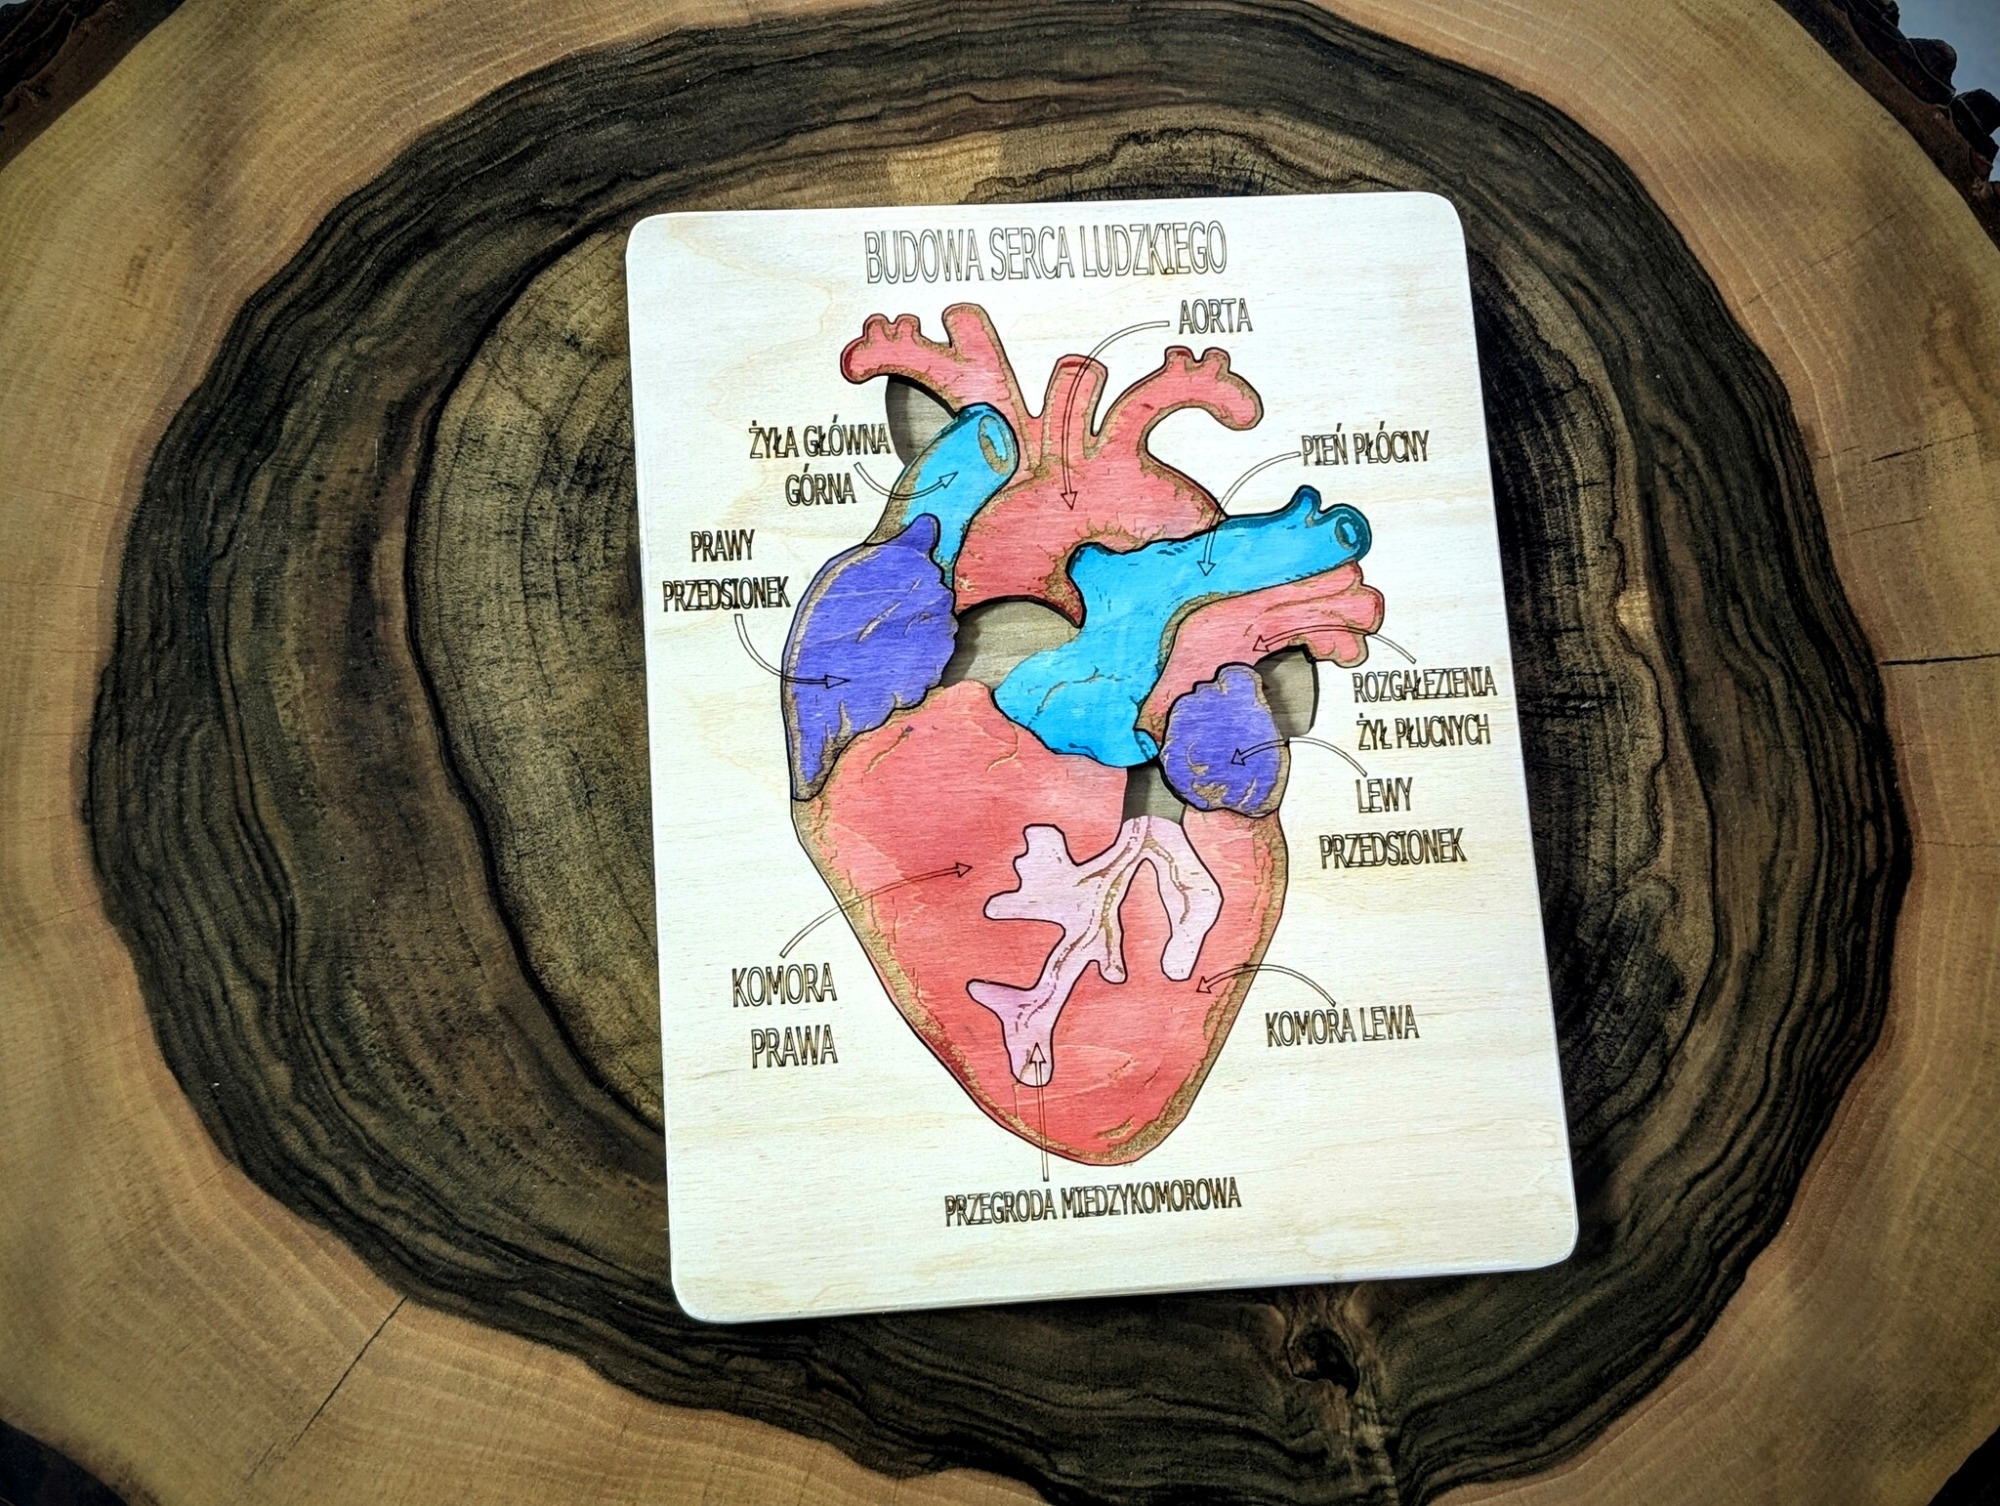 BUDOWA SERCA LUDZKIEGO
AORTA
ŻYŁA GŁÓWNA
GÓRNA
PIEŃ PŁÓCNY
PRAWY
PRZEDSIONEK
ROZGAŁEZIENIA
ŻYŁ PŁUCNYCH
LEWY
PRZEDSIONEK
KOMORA
PRAWA
KOMORA LEWA
PRZEGRODA MIEDZYKOMOROWA